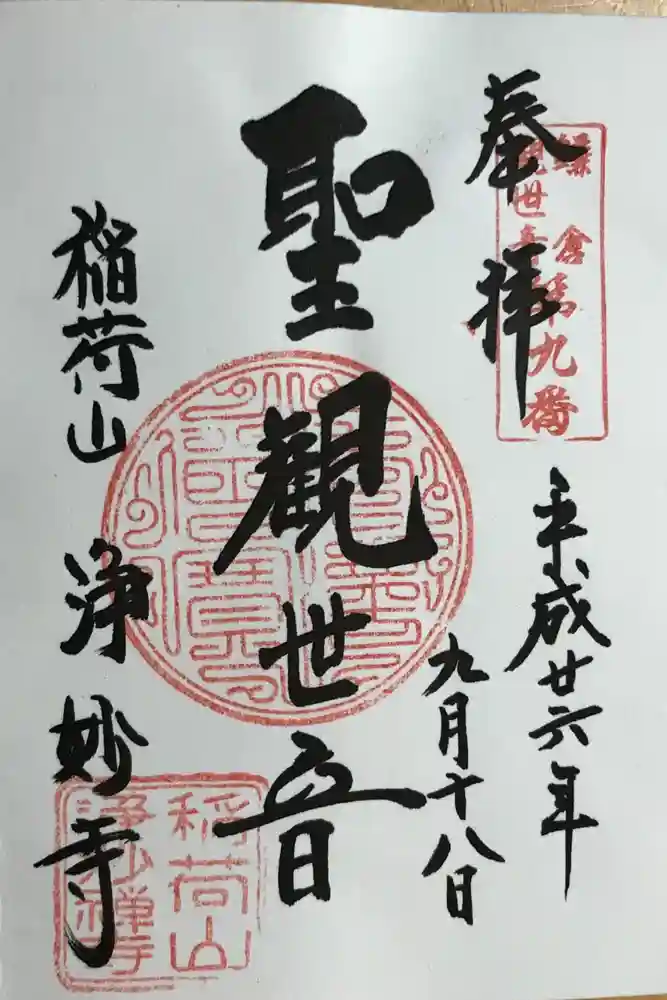 奉拝
鎌倉
観世音第九番
平成廿六年
九月十八日
聖観世音
稲荷山
浄妙寺
稲荷山
浄妙禅寺